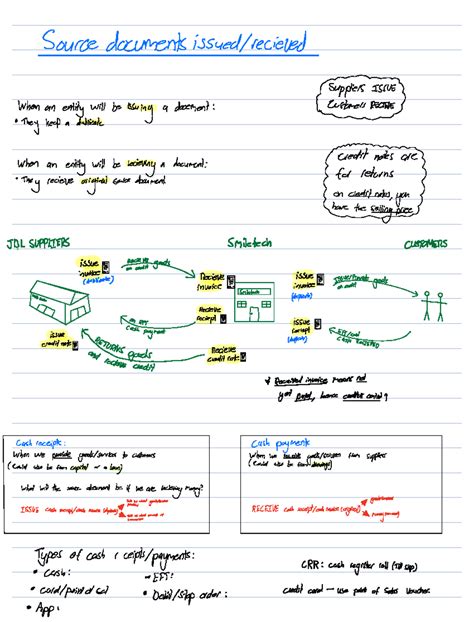 Source documents issued/recieved
Suppliers ISSUE
Customers RECIEVE
When an entity will be issuing a document:
• They keep a duplicate
Credit notes are
for returns
on credit notes, you
have the selling price
When an entity will be recieving a document:
• They recieve original source document
JDL SUPPLIERS
Smiletech
CUSTOMERS
issue
invoice
(duplicate)
RECIEVE goods
on credit
Recieve
invoice
Smiletech
issue
invoice
(duplicate)
goods
on credit
Recieve
reciept
an EFT
cash payment
issue
reciept
(duplicate)
issue
credit note
RETURNS goods
and recieve credit
Recieve
credit note
* Recieved invoice means not
yet paid, hence
Cash receipts:
When we provide goods/services to customers
(Could also be from capital or a loan)
What will the source document be if we are recieving money?
ISSUE cash receipt/cash
Cash payments
When we recieve goods/services from supplier
(Could also be from drawings)
RECEIVE cash receipt/cash invoice (original)
Types of cash receipts/payments:
• Cash:
• card/point of sale
• App:
- EFT:
• Debit/Stop order:
CRR: cash register roll (till slip)
credit card - use point of sales voucher